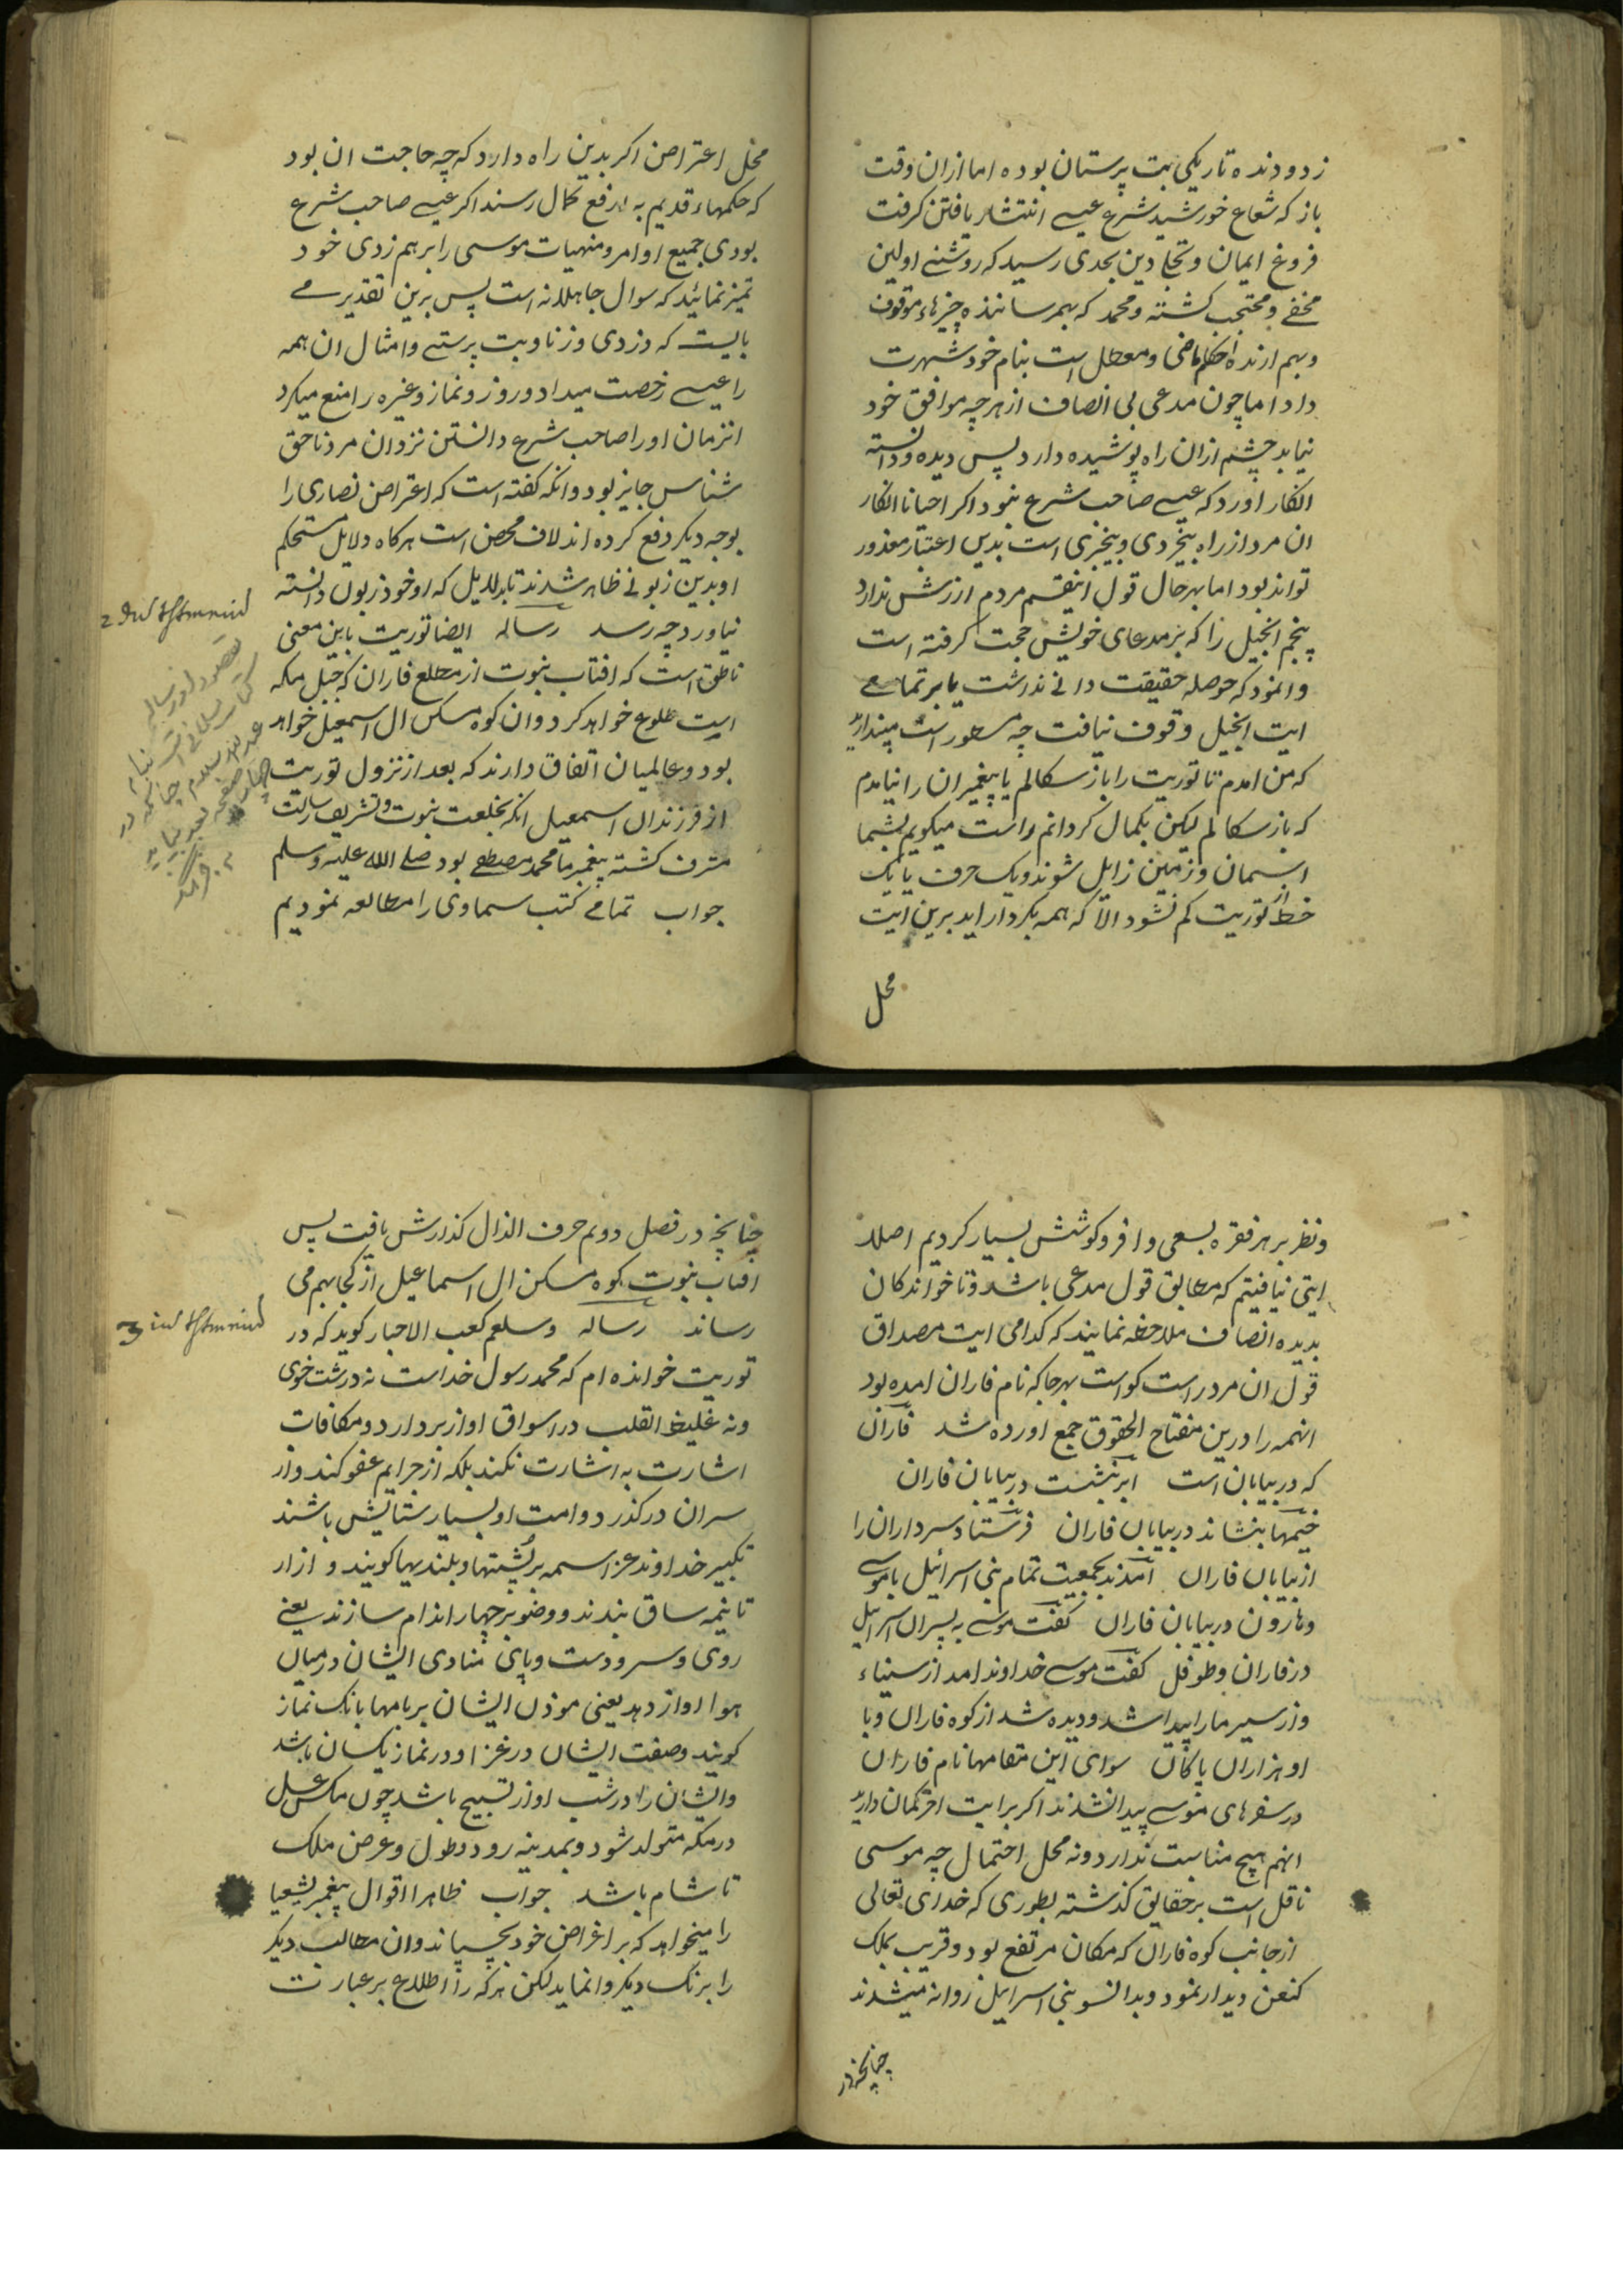 زدودنده تاریکی بت پرستان بوده اما ازان وقت
باز که شعاع خورشید شرع عیسے انتشار یافتن کرفت
فروغ ایمان و تجلے دین بحدی رسید که روشنے اولین
مخفے و محتجب کشته و محمد که بهم رسانندهٔ چیزهاء موقوف
و بهم ارنده احکام ماضی و معطل است بنام خود شهرت
داد اما چون مدعی بی انصاف از هر چه موافق خود
نیابد چشم ازان راه پوشیده دارد پس دیده و دانسته
انکار اورد که عیسے صاحب شرع نبود اکر احیانا انکار
ان مرد از راه بیخردی و بیخبری است بدین اعتبار معذور
تواند بود اما بهر حال قول اینقسم مردم ارزش ندارد
پنجم انجیل را که بر مدعای خویش حجت کرفته است
وانمود که حوصله حقیقت دانے ندرشت یا بر تمامے
ایت انجیل وقوف نیافت چه مسطور است مپندارید
که من امدم تا توریت را باز سکالم یا پیغمبران را نیامدم
که باز سکالم لیکن بکمال کردانم راست میکویم بشما
اسمان و زمین زایل شوند و یک حرف یا یک
خط از توریت کم نشود الا که همه بکردار اید برین ایت
محل
محل اعتراض اکر بدین راه دارد که چه حاجت ان بود
که حکمهاء قدیم به ارفع کمال رسند اکر عیسے صاحب شرع
بودی جمیع اوامر و منهیات موسی را برهم زدی خود
تمیز نمائید که سوال جاهلانه است پس برین تقدیر مے
بایست که دزدی و زنا و بت پرستے و امثال ان همه
را عیسے رخصت میداد و روزه و نماز و غیره را منع میکرد
انزمان او را صاحب شرع دانستن نزد ان مرد ناحق
شناس جایز بود و انکه کفته است که اعتراض نصاری را
بوجه دیکر دفع کرده اند لاف محض است هرکاه دلایل مستحکم
او بدین زبونے ظاهر شدند تا بدلایل که او خود زبون دانسته
نیاورد چه رسد رساله ایضا توریت باین معنی
ناطق است که افتاب نبوت از مطلع فاران که جبل مکه
است طلوع خواهد کرد و ان کوه مسکن ال اسمعیل خواهد
بود و عالمیان اتفاق دارند که بعد از نزول توریت
از فرزندان اسمعیل انکه بخلعت نبوت و تشریف رسالت
مشرف کشته پیغمبر ما محمد مصطفے بود صلے الله علیه وسلم
جواب تمامے کتب سماوی را مطالعه نمودیم
و نظر بر هر فقره بسعی وافر و کوشش بسیار کردیم اصلا
ایتی نیافتیم که مطابق قول مدعی باشد و تا خوانندکان
بدیده انصاف ملاحظه نمایند که کدامی ایت مصداق
قول ان مرد راست کواست بهرجا که نام فاران امده بود
انهمه را درین مفتاح الحقوق جمع اورده شد فاران
که در بیابان است ابر نشست در بیابان فاران
خیمها بنشاند در بیابان فاران فرستاد سرداران را
از بیابان فاران امدند بجمعیت تمام بنی اسرائیل با موسے
و هارون در بیابان فاران کفت موسے به پسران اسراییل
در فاران و طوفل کفت موسے خداوند امد از سیناء
و از سیر ما را پیدا شد و دیده شد از کوه فاران و با
او هزاران پاکان سوای این مقامها نام فاران
در سفرهای موسے پیدا نشدند اکر بر ایت اخر کمان دارید
انهم هیچ مناسبت ندارد و نه محل احتمال چه موسی
ناقل است بر حقایق کذشته بطوری که خدای تعالی
از جانب کوه فاران که مکان مرتفع بود و قریب بملک
کنعن دیدار نمود و بدانسو بنی اسراییل روانه میشدند
چنانچه در
چنانچه در فصل دویم حرف الذال کذارش یافت پس
افتاب نبوت بکوه مسکن ال اسماعیل از کجا بهم می
رساند رساله وسلعم کعب الاحبار کوید که در
توریت خوانده ام که محمد رسول خداست نه درشت خوی
و نه غلیظ القلب در اسواق اواز بردارد و مکافات
اشارت به اشارت نکند بلکه از جرایم عفو کند و از
سران درکذرد و امت او بسیار ستایش باشند
تکبیر خداوند عز اسمه بر پُشتها و بلندیها کویند و ازار
تا نیمه ساق بندند و وضو بر چهار اندام سازند یعنے
روی و سر و دست و پای منادی ایشان در میان
هوا اواز دهد یعنی موذن ایشان بر بامها بانک نماز
کویند وصفت ایشان در غزا و در نماز یکسان باشد
و ایشان را در شب اواز تسبیح باشد چون مکس عسل
در مکه متولد شود و بمدینه رود و طول و عرض ملک
تا شام باشد جواب ظاهرا اقوال پیغمبر یشعیا
را میخواهد که بر اغراض خود بچسپاند و ان مطالب دیکر
را برنک دیکر وانماید لکن هر که را اطلاع بر عبارت